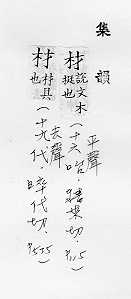 集韻
材 說文木挺也(十六咍.牆來切.P115)
平聲
材 材具也(十九代.昨代切.P535)
去聲